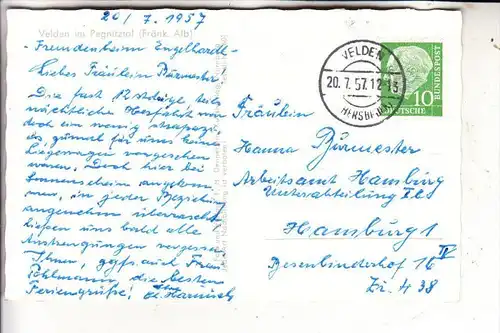 20/7.1957
Velden im Pegnitztal (Fränk. Alb)
- Fremdenheim Engelhardt -
Liebes Fräulein Bürmester!
Die fast 12stündige, teils
nächtliche Herfahrt war
doch ein wenig strapaziös,
als für uns keine
Liegewagen vorgesehen
waren. Doch hier bei
Sonnenschein angekom-
men, in jeder Beziehung
angenehm überrascht
ließen uns bald alle
Anstrengungen vergessen.
Ihnen, ggfs. auch Frau
Pohlmann die besten
Feriengrüße! Ihr
H. Harnisch
VELDEN
20.7.57.12-13
HERSBRUCK
10
DEUTSCHE
BUNDESPOST
Fräulein
Hanna Bürmester
Arbeitsamt Hamburg
Unterabteilung
Hamburg 1
Besenbinderhof 16 IV
Zi. 438